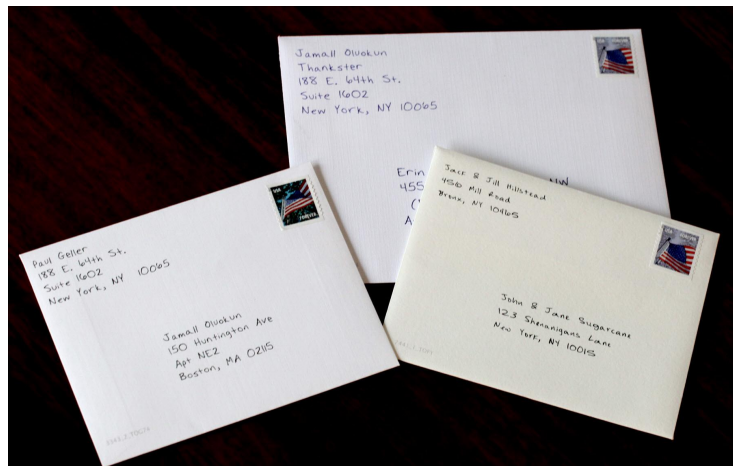 Jamall Oluokun
Thankster
188 E. 64th St.
Suite 1602
New York, NY 10065
USA
Erin
NW
455
Paul Geller
188 E. 64th St.
Suite 1602
New York, NY 10065
USA
FOREVER
Jamall Oluokun
150 Huntington Ave
Apt NE2
Boston, MA 02115
Jack & Jill Hillstead
Mill Road
Bronx, NY 10465
USA
John & Jane Sugarcane
123 Shenanigans Lane
New York, NY 10015